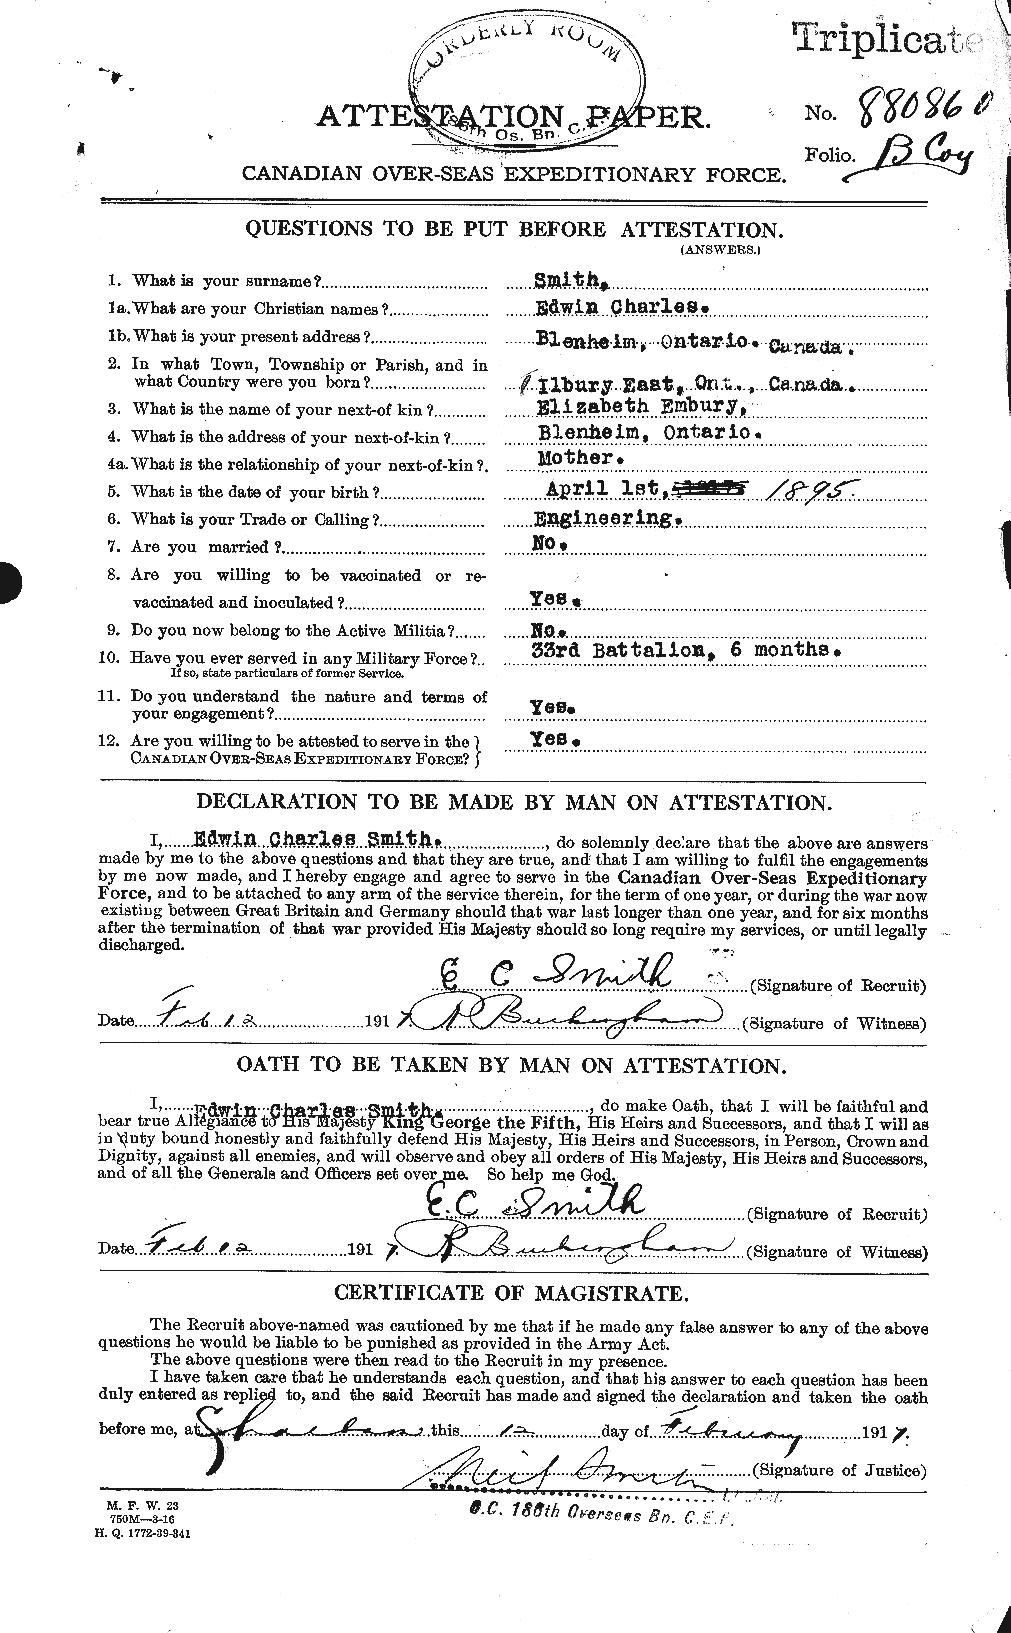 ORDERLY ROOM
Triplicate
ATTESTATION PAPER.
No. 880860
Os. Bn. C.
Folio. B Coy
CANADIAN OVER-SEAS EXPEDITIONARY FORCE.
QUESTIONS TO BE PUT BEFORE ATTESTATION.
(ANSWERS.)
1. What is your surname? Smith,
1a. What are your Christian names? Edwin Charles.
1b. What is your present address? Blenheim, Ontario. Canada.
2. In what Town, Township or Parish, and in
what Country were you born? Ilbury East, Ont., Canada.
3. What is the name of your next-of kin? Elizabeth Embury,
4. What is the address of your next-of-kin? Blenheim, Ontario.
4a. What is the relationship of your next-of-kin? Mother.
5. What is the date of your birth? April 1st, 1895.
6. What is your Trade or Calling? Engineering.
7. Are you married? No.
8. Are you willing to be vaccinated or re-
vaccinated and inoculated? Yes.
9. Do you now belong to the Active Militia? No.
10. Have you ever served in any Military Force? 33rd Battalion, 6 months.
If so, state particulars of former Service.
11. Do you understand the nature and terms of
your engagement? Yes.
12. Are you willing to be attested to serve in the Yes.
CANADIAN OVER-SEAS EXPEDITIONARY FORCE?
DECLARATION TO BE MADE BY MAN ON ATTESTATION.
I, Edwin Charles Smith. , do solemnly declare that the above are answers
made by me to the above questions and that they are true, and that I am willing to fulfil the engagements
by me now made, and I hereby engage and agree to serve in the Canadian Over-Seas Expeditionary
Force, and to be attached to any arm of the service therein, for the term of one year, or during the war now
existing between Great Britain and Germany should that war last longer than one year, and for six months
after the termination of that war provided His Majesty should so long require my services, or until legally
discharged.
E C Smith (Signature of Recruit)
Date Feb 12 1917. R Buckingham (Signature of Witness)
OATH TO BE TAKEN BY MAN ON ATTESTATION.
I, Edwin Charles Smith. , do make Oath, that I will be faithful and
bear true Allegiance to His Majesty King George the Fifth, His Heirs and Successors, and that I will as
in duty bound honestly and faithfully defend His Majesty, His Heirs and Successors, in Person, Crown and
Dignity, against all enemies, and will observe and obey all orders of His Majesty, His Heirs and Successors,
and of all the Generals and Officers set over me. So help me God.
E. C Smith (Signature of Recruit)
Date Feb 12 1917. R Buckingham (Signature of Witness)
CERTIFICATE OF MAGISTRATE.
The Recruit above-named was cautioned by me that if he made any false answer to any of the above
questions he would be liable to be punished as provided in the Army Act.
The above questions were then read to the Recruit in my presence.
I have taken care that he understands each question, and that his answer to each question has been
duly entered as replied to, and the said Recruit has made and signed the declaration and taken the oath
before me, at Chatham this 12 day of February 1917.
Neil Smith (Signature of Justice)
M. F. W. 23
750M—3-16
H. Q. 1772-39-841
O.C. 186th Overseas Bn. C.E.F.